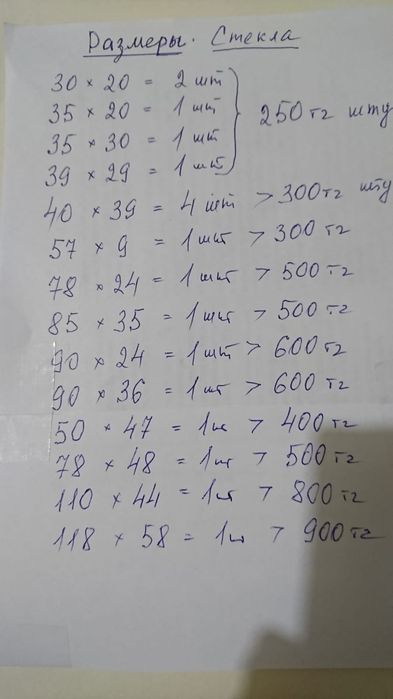 Размеры. Стекла
30 × 20 = 2 шт
35 × 20 = 1 шт } 250 тг шту
35 × 30 = 1 шт
39 × 29 = 1 шт
40 × 39 = 4 шт > 300 тг шту
57 × 9 = 1 шт > 300 тг
78 × 24 = 1 шт > 500 тг
85 × 35 = 1 шт > 500 тг
90 × 24 = 1 шт > 600 тг
90 × 36 = 1 шт > 600 тг
50 × 47 = 1 ш > 400 тг
78 × 48 = 1 шт > 500 тг
110 × 44 = 1 шт > 800 тг
118 × 58 = 1 ш > 900 тг